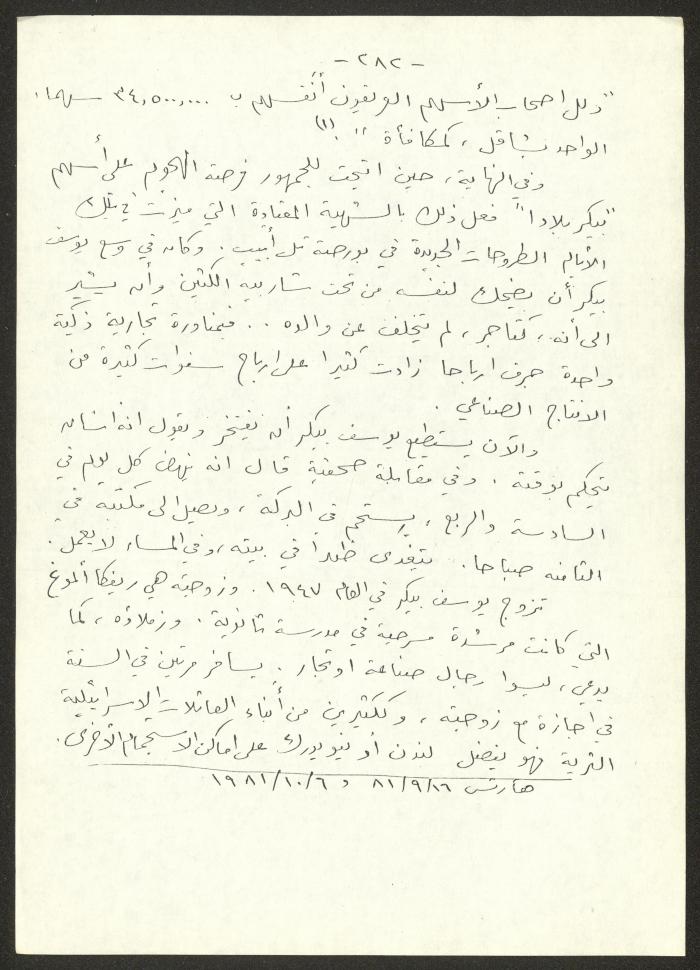 - ٢٨٢ -
"ودلل اصحاب الأسهم العريقون أنفسهم ب ٣٤,٥٠٠,٠٠٠ سهما،
الواحد بشاقل، كمكافأة". (١)
وفي النهاية، حين اتيحت للجمهور فرصة الهجوم على أسهم
"بيكر بلادا" فعل ذلك بالشهية المعتادة التي ميزت في تلك
الأيام الطروحات الجديدة في بورصة تل أبيب. وكان في وسع يوسف
بيكر أن يضحك لنفسه من تحت شاربيه الكثين وأن يشير
الى أنه، كتاجر، لم يتخلف عن والده .. فبمناورة تجارية ذكية
واحدة جرف ارباحا زادت كثيرا على ارباح سنوات كثيرة من
الانتاج الصناعي.
والآن يستطيع يوسف بيكر أن يفتخر ويقول انه انسان
يتحكم بوقته. وفي مقابلة صحفية قال انه ينهض كل يوم في
السادسة والربع، يستحم في البركة، ويصل الى مكتبه في
الثامنه صباحا. يتغدى ظهرا في بيته، وفي المساء لا يعمل.
تزوج يوسف بيكر في العام ١٩٤٧. وزوجته هي ريفكا ألموغ
التي كانت مرشدة مسرحية في مدرسة ثانوية. وزملاؤه، كما
يدعي، ليسوا رجال صناعة او تجار. يسافر مرتين في السنة
في اجازة مع زوجته، وككثيرين من أبناء العائلات الإسرائيلية
الثرية فهو يفضل لندن أو نيويورك على اماكن الاستجمام الأخرى.
هآرتس ٨١/٩/١٦ و ١٩٨١/١٠/٦